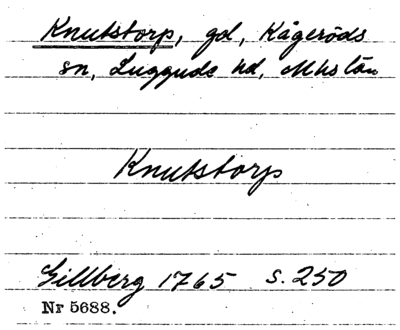 Knutstorp, gd, Kågeröds
sn, Luggude hd, Mhs län
Knutstorp
Gillberg 1765 s. 250
Nr 5688.